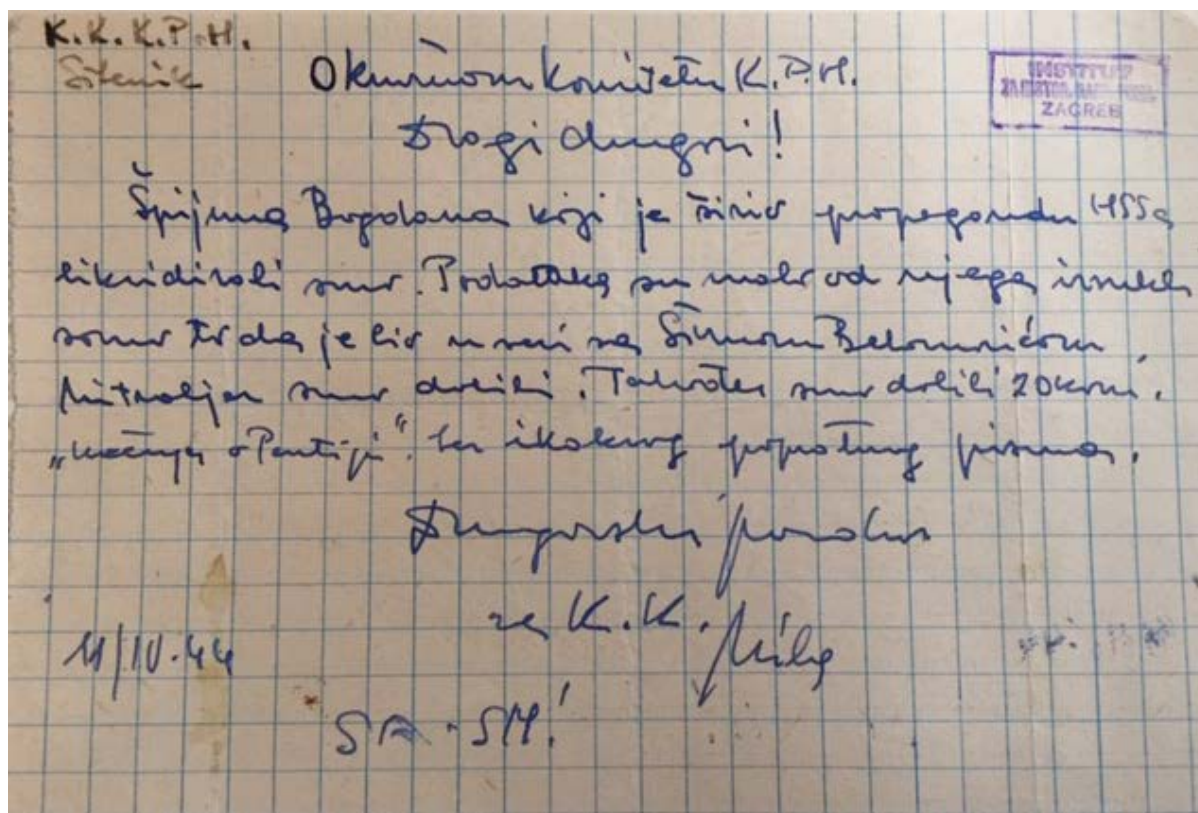 K.K.K.P.H.
Šibenik
Okružnom komitetu K.P.H.
INSTITUT
ZAGREB
Dragi drugovi!
Špijuna Bogdana koji je širio propagandu HSSa
likvidirali smo. Podataka smo malo od njega izvukli
samo to da je bio u vezi sa Šimom
Mitraljez smo dobili. Također smo dobili 20 kom.
„Učenja o Partiji“. bez ikakvog popratnog pisma.
Drugarski pozdrav
za K.K.
11/IV.44
SF-SN!